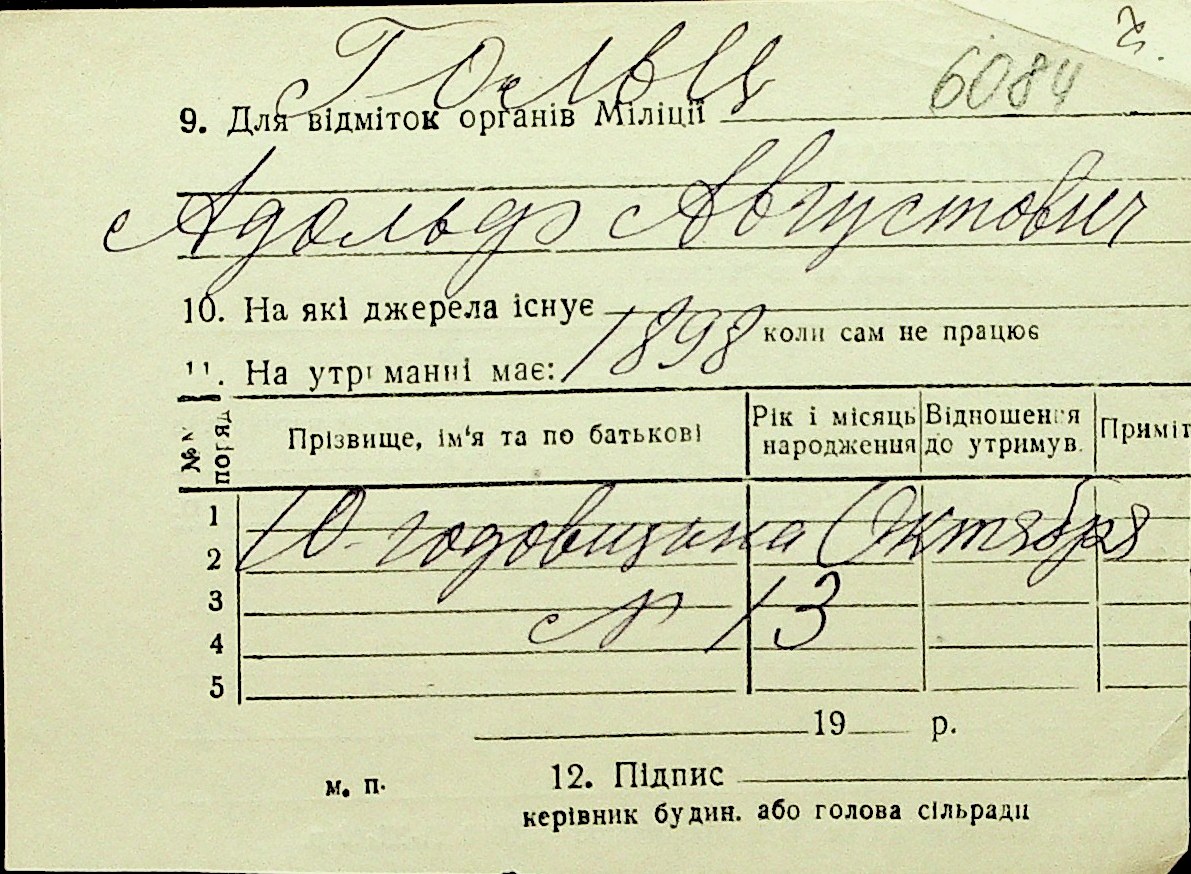 Гольц 6084
9. Для відміток органів Міліції
Адольф Августович
10. На які джерела існує
коли сам не працює
11. На утриманні має: 1898
№№ поряд
Прізвище, ім'я та по батькові
Рік і місяць народження
Відношення до утримув.
Приміт
1
2
10-годовщина Октября
3
4
№ 13
5
19 р.
м. п.
12. Підпис
керівник будин. або голова сільради